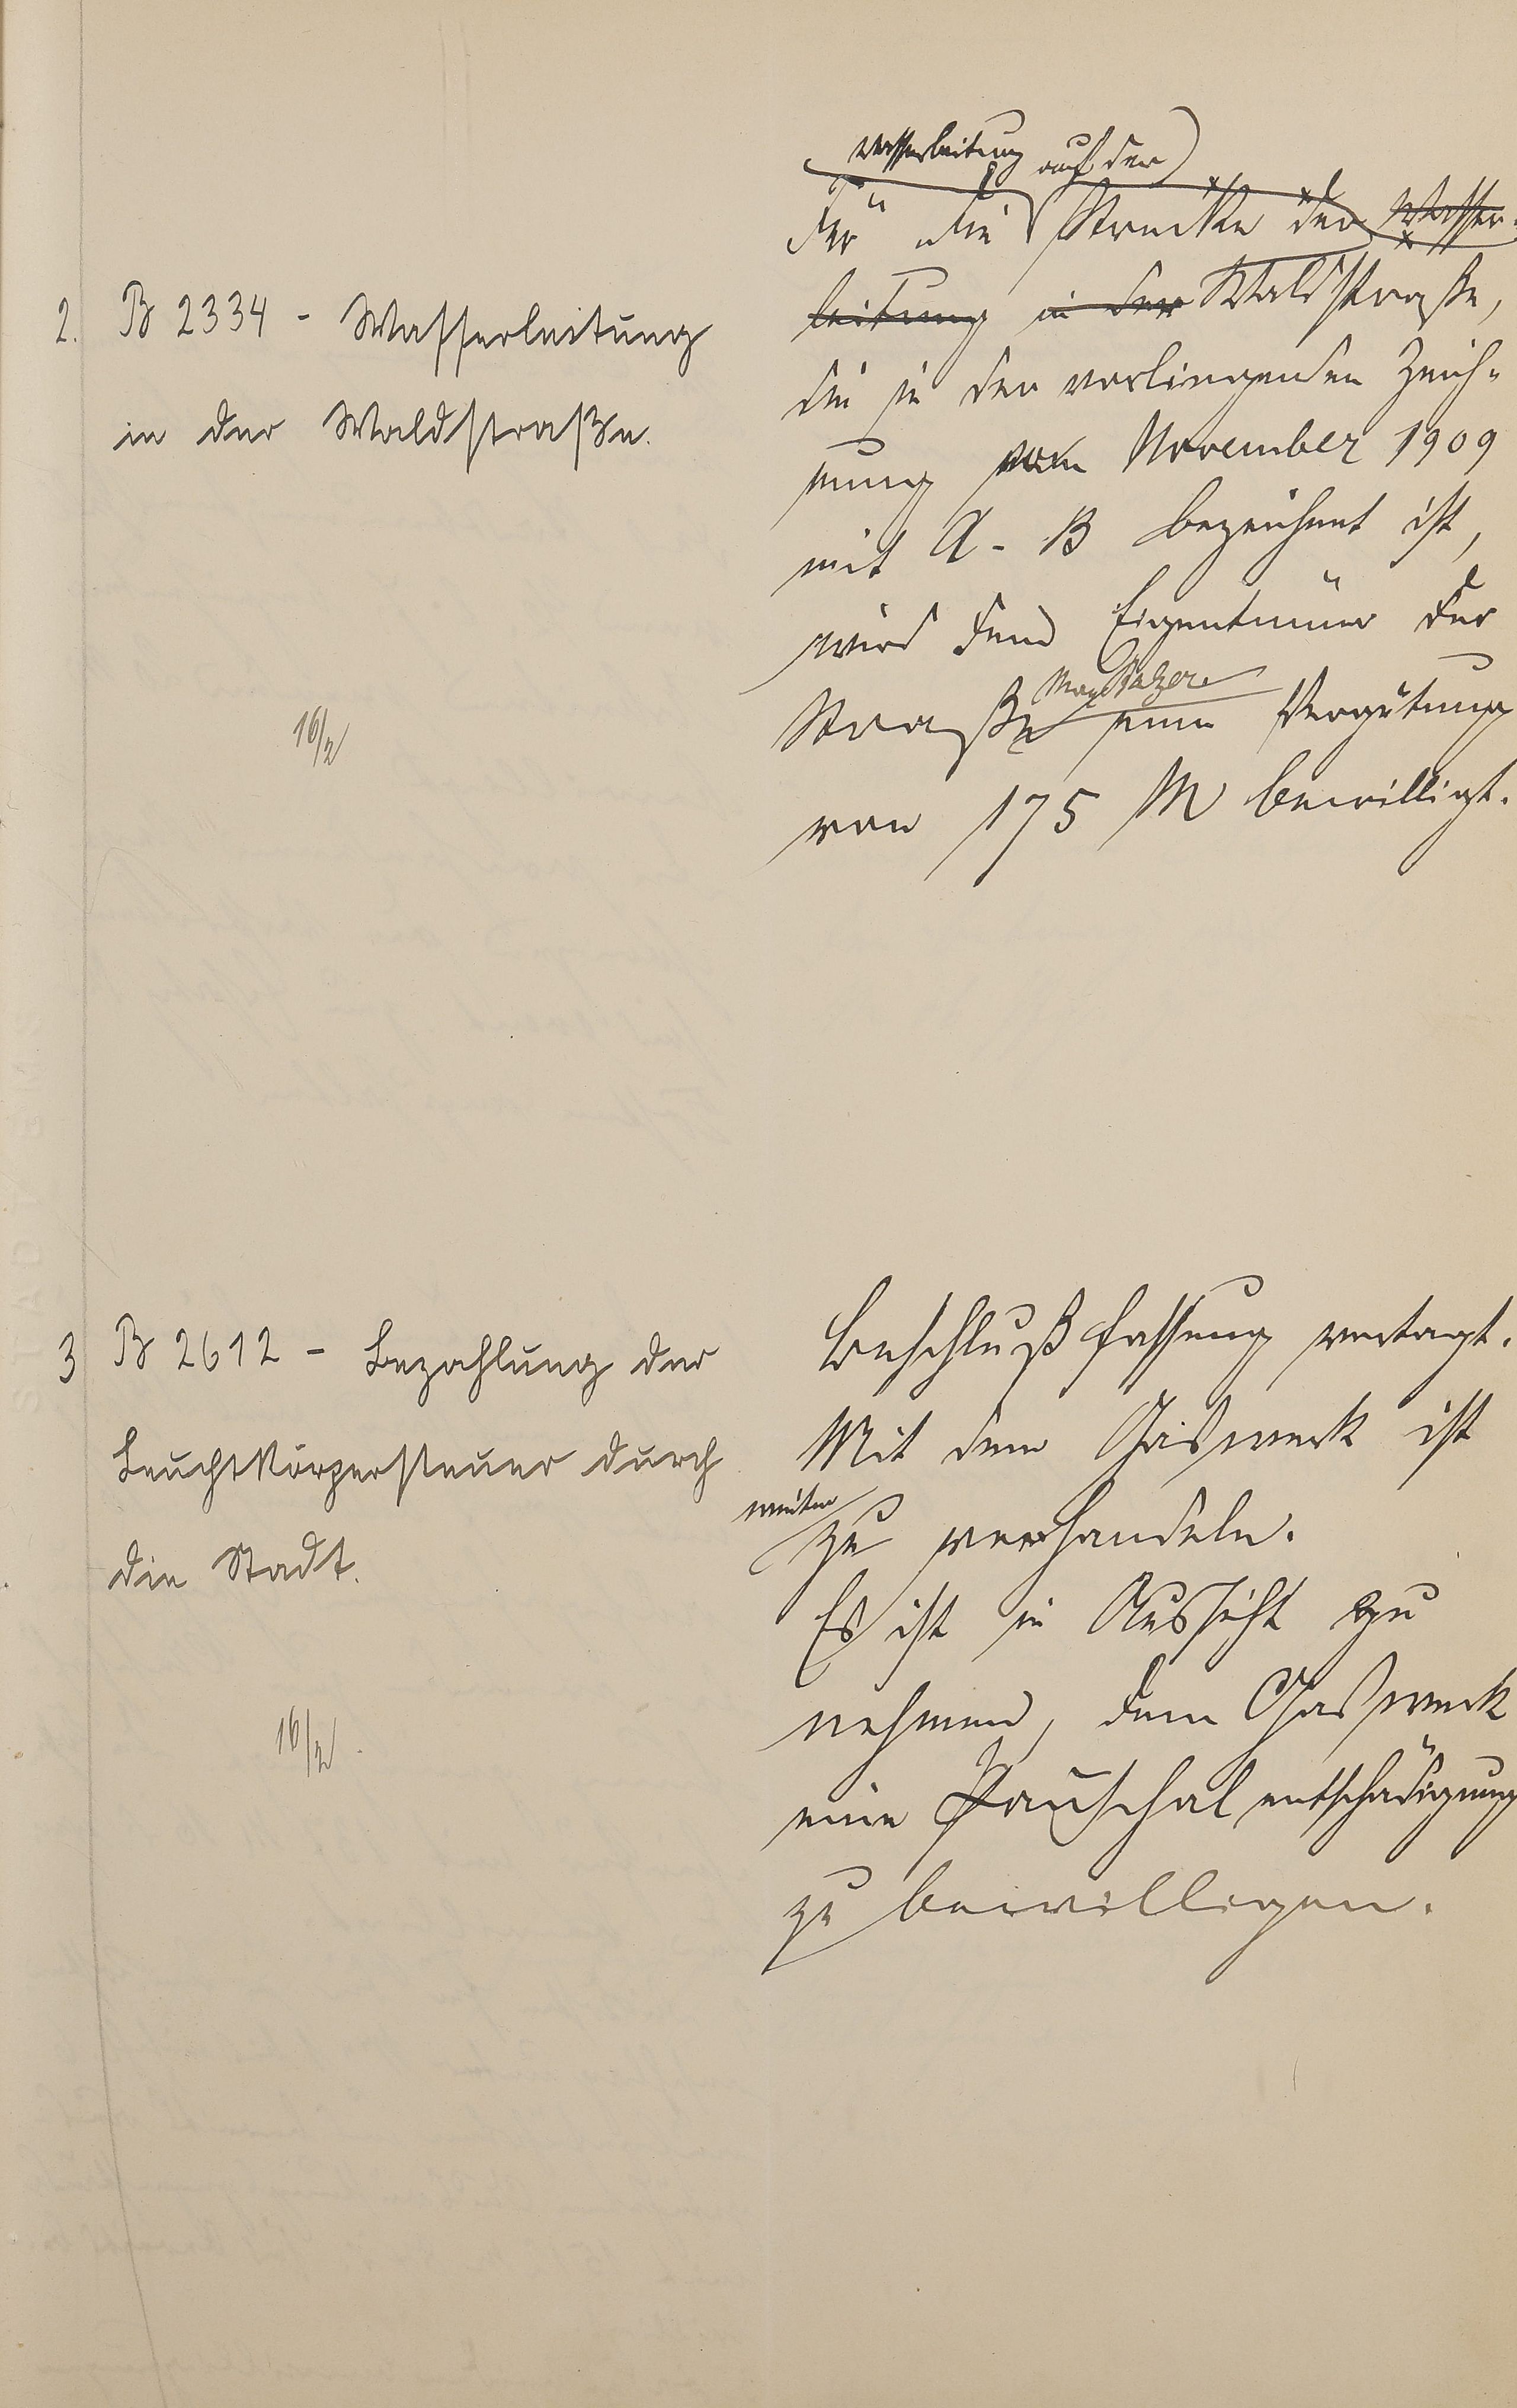 2. B 2334 - Wasserleitung
in der Waldstraße.
16/2
Wasserleitung auf der
Für die Strecke der Wasser-
leitung in der Waldstraße,
die in der vorliegenden Zeich-
nung vom November 1909
mit A - B bezeichnet ist,
wird dem Eigentümer der
Straße eine Vergütung
von 175 M bewilligt.
3 B 2612 - Bezahlung der
Leuchtkörpersteuer durch
die Stadt.
16/2
Beschlußfassung vertagt.
Mit dem Gaswerk ist
weiter
zu verhandeln.
Es ist in Aussicht zu
nehmen, dem Gaswerk
eine Pauschalentschädigung
zu bewilligen.